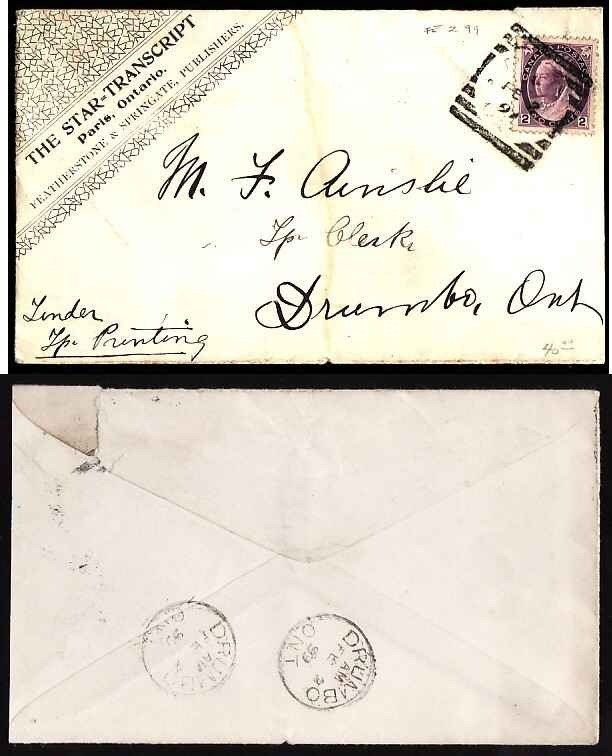 THE STAR-TRANSCRIPT
Paris, Ontario.
FEATHERSTONE & SPRINGATE, PUBLISHERS.
FE 2 99
CANADA POSTAGE
2 CENTS 2
M. F. Ainslie
Tp. Clerk
Drumbo, Ont
Tender
Tp. Printing
40
DRUMBO
AM
FE
99
ONT
DRUMBO
AM
FE
99
ONT